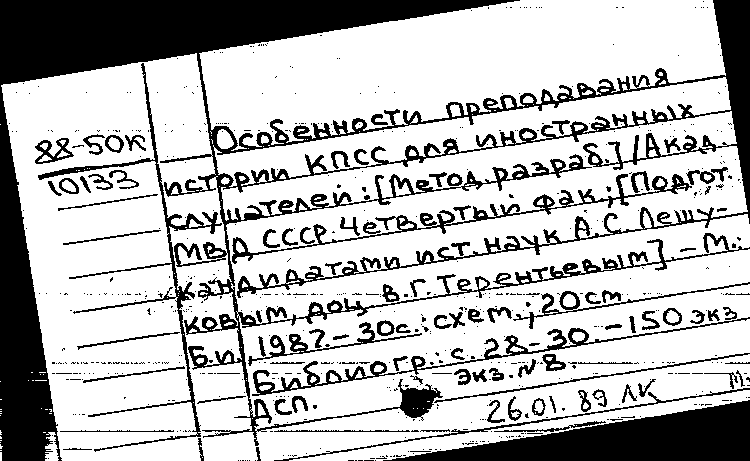 88-50К
10133
Особенности преподавания
истории КПСС для иностранных
слушателей: [Метод. разраб.] / Акад.
МВД СССР. Четвертый фак.; [Подгот.
кандидатами ист. наук А.С. Лешу-
ковым, доц. В.Г. Терентьевым]. - М.:
Б.и., 1987. - 30с.: схем.; 20см.
Библиогр.: с. 28-30. - 150 экз
ДСП. экз. N 8.
26.01.89 ЛК